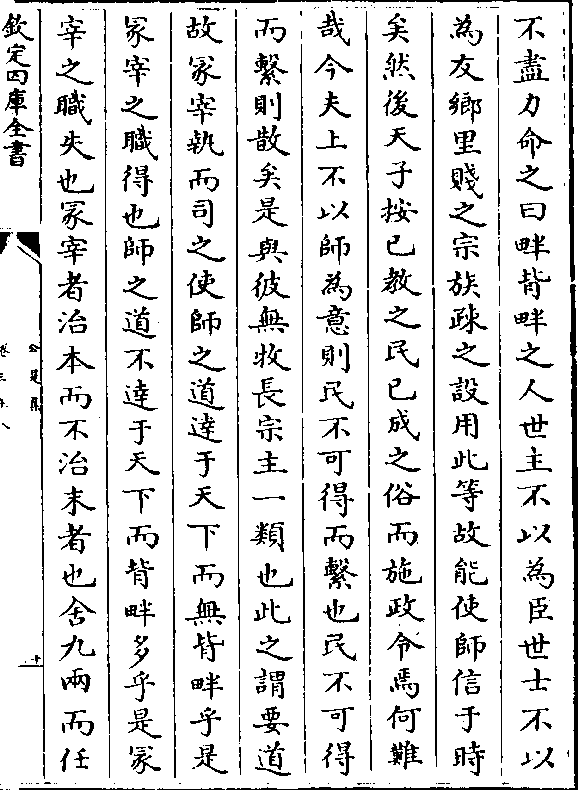 不盡力命之曰畔背畔之人世主不以為臣世士不以
為友鄉里賤之宗族疎之設用此等故能使師信于時
矣然後天子按已教之民已成之俗而施政令焉何難
哉今夫上不以師為意則民不可得而繫也民不可得
而繫則散矣是與彼無牧長宗主一類也此之謂要道
故冢宰執而司之使師之道達于天下而無背畔乎是
冢宰之職得也師之道不達于天下而背畔多乎是冢
宰之職失也冢宰者治本而不治末者也舍九兩而任
欽定四庫全書
公是集
卷三十八
十